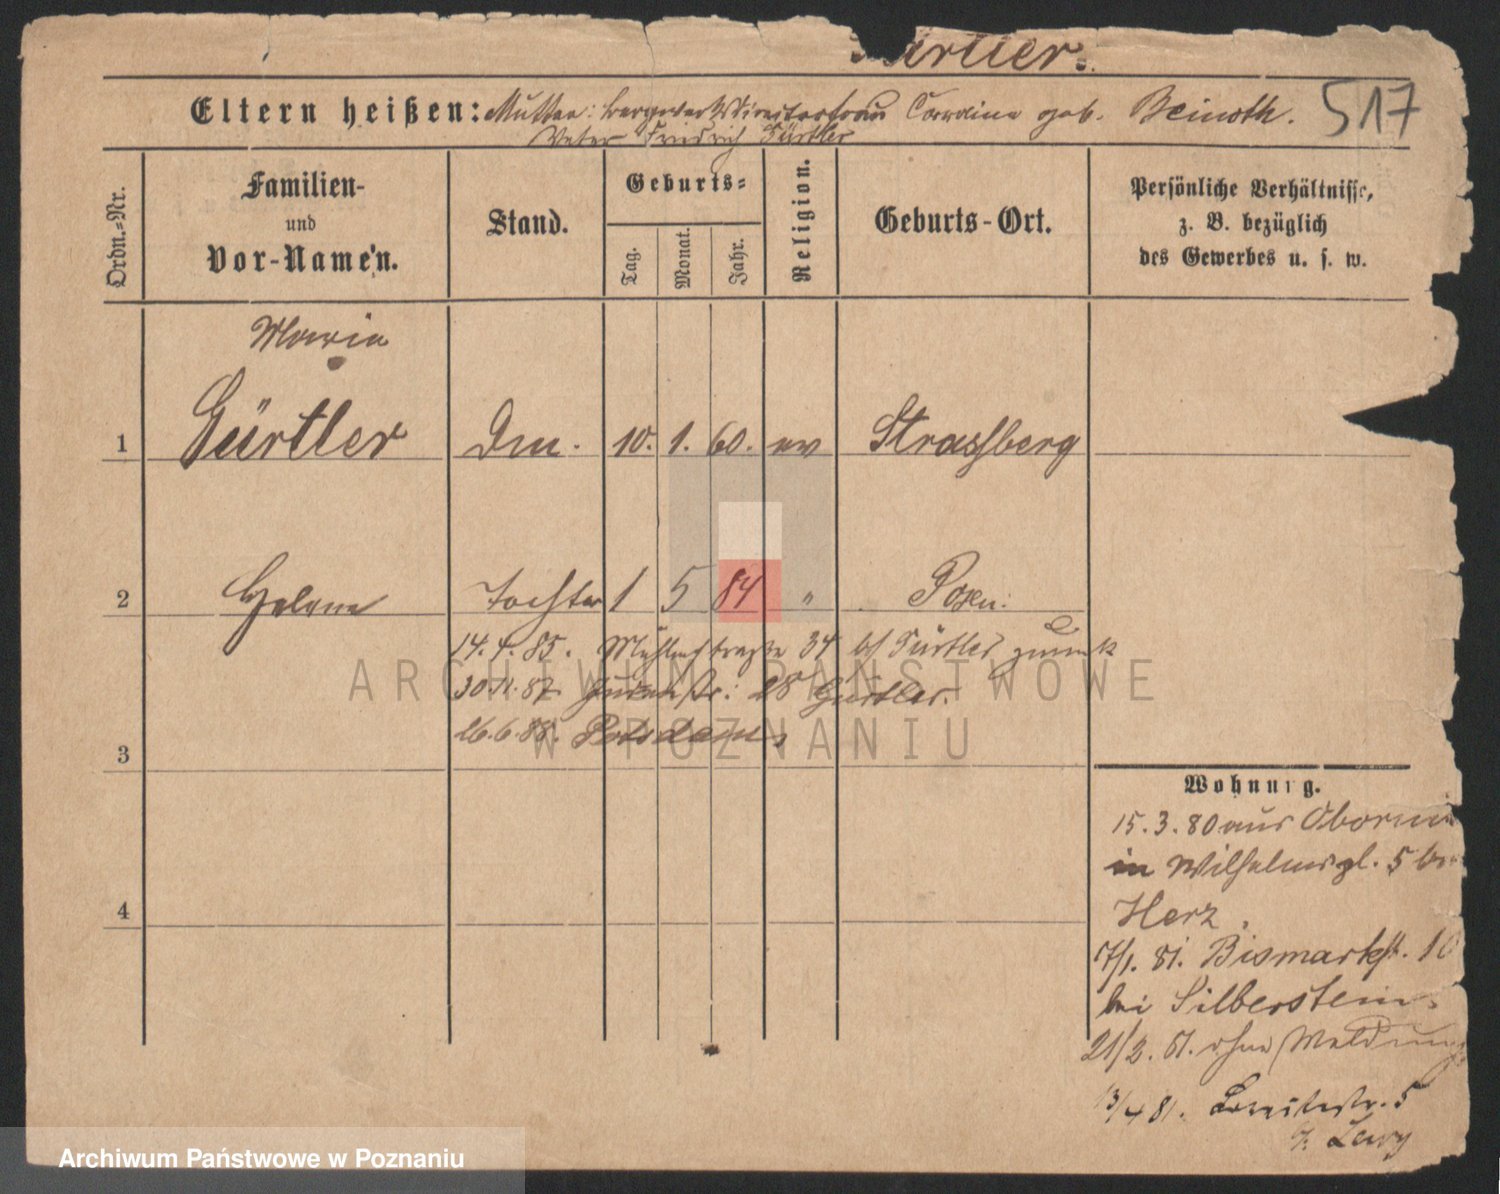 Eltern heißen: Mutter: bergwerksdirectorfrau Caroline geb. Beinoth.
517
Vater Friedrich Gürtler
Ordn.-Nr.
Familien-
und
Vor-Namen.
Stand.
Geburts-
Tag.
Monat.
Jahr.
Religion.
Geburts-Ort.
Persönliche Verhältnisse,
z. B. bezüglich
des Gewerbes u. s. w.
Maria
1 Gürtler 10. 1. 60. ev Strassberg
2 Helene Tochter 1 5 84 " Posen.
14. 4. 85. Mühlenstraße 34 bei Gürtler zurück
30.11.87 28 Gürtler.
26.6.88. Potsdam
3
4
Wohnung.
15.3.80 aus Obornik
in Wilhelmspl. 5 bei
Herz
17/1. 81. Bismarkstr. 10
bei Silberstein
21/2. 81. ohne Meldung
13/4 81. Breitestr. 5
b. Levy
ARCHIWUM PAŃSTWOWE
W POZNANIU
Archiwum Państwowe w Poznaniu